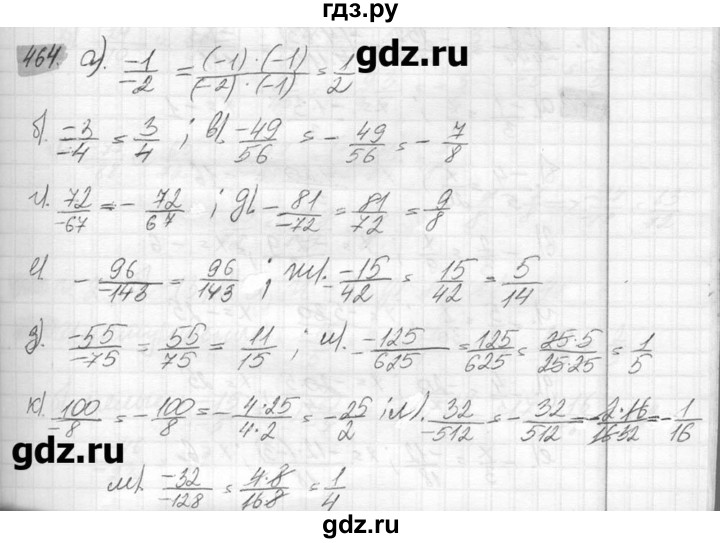 гдз.ру
464. а). -1/-2 = (-1)·(-1)/(-2)·(-1) = 1/2
gdz.ru
б). -3/-4 = 3/4 ; в). -49/56 = - 49/56 = - 7/8
г). 72/-67 = - 72/67 ; д). - 81/-72 = 81/72 = 9/8
е). - 96/-143 = 96/143 ; ж). - -15/42 = 15/42 = 5/14
з). -55/-75 = 55/75 = 11/15 ; и). - -125/625 = 125/625 = 25·5/25·25 = 1/5
к). 100/-8 = - 100/8 = - 4·25/4·2 = - 25/2 ; л). 32/-512 = - 32/512 = - 2·16/16·32 = - 1/16
gdz.ru
м). -32/-128 = 4·8/16·8 = 1/4
gdz.ru